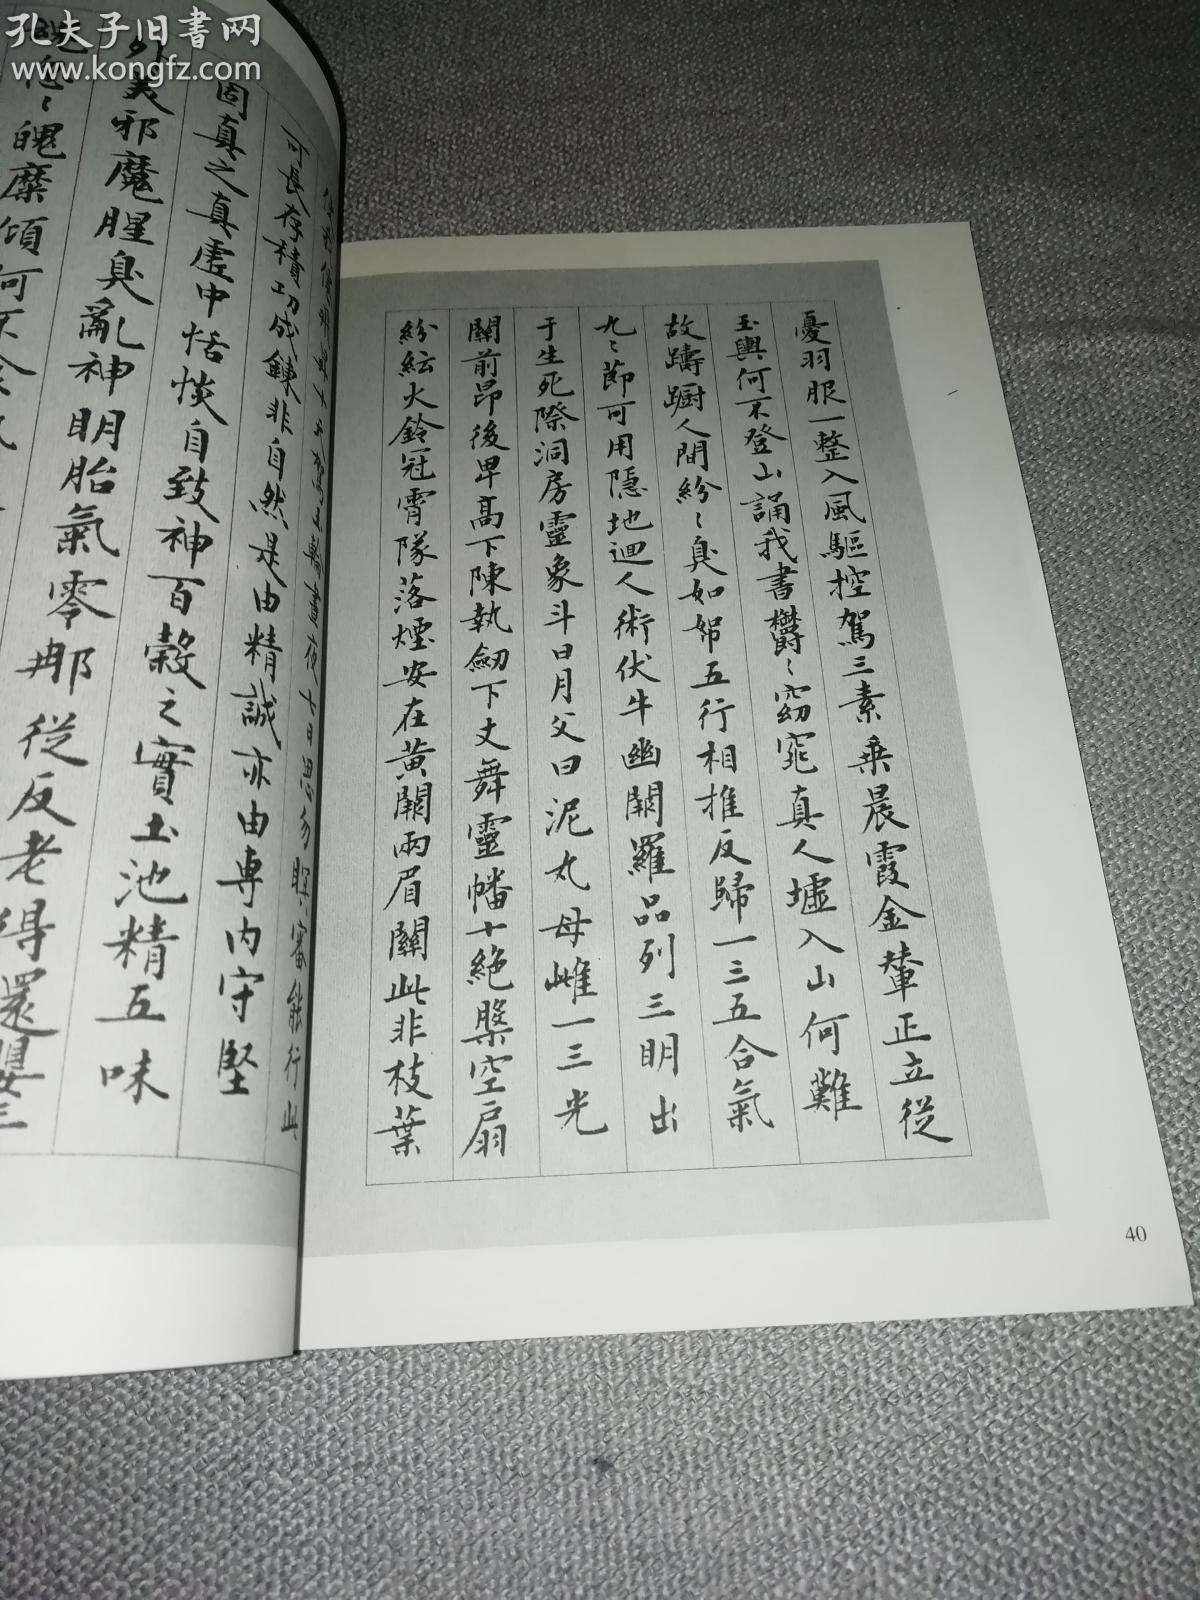 孔夫子旧書网
www.kongfz.com
憂羽服一整入風驅控駕三素乗晨霞金輦正立從
玉輿何不登山誦我書欝〻窈窕真人墟入山何難
故躊躇人間紛〻臭如帤五行相推反歸一三五合氣
九〻節可用隱地迴人術伏牛幽闕羅品列三明出
于生死際洞房靈象斗日月父曰泥丸母雌一三光
關前昂後卑高下陳執劒下丈舞靈幡十絶盤空扇
紛紜火鈴冠霄隊落煙安在黃闕兩眉闗此非枝葉
40
晝夜七日思勿暝審能行此
可長存積功成錬非自然是由精誠亦由専内守堅
固真之真虛中恬惔自致神百穀之實土池精五味
外美邪魔腥臭亂神明胎氣零那從反老得還嬰三
魂忽〻魄糜傾何不食氣